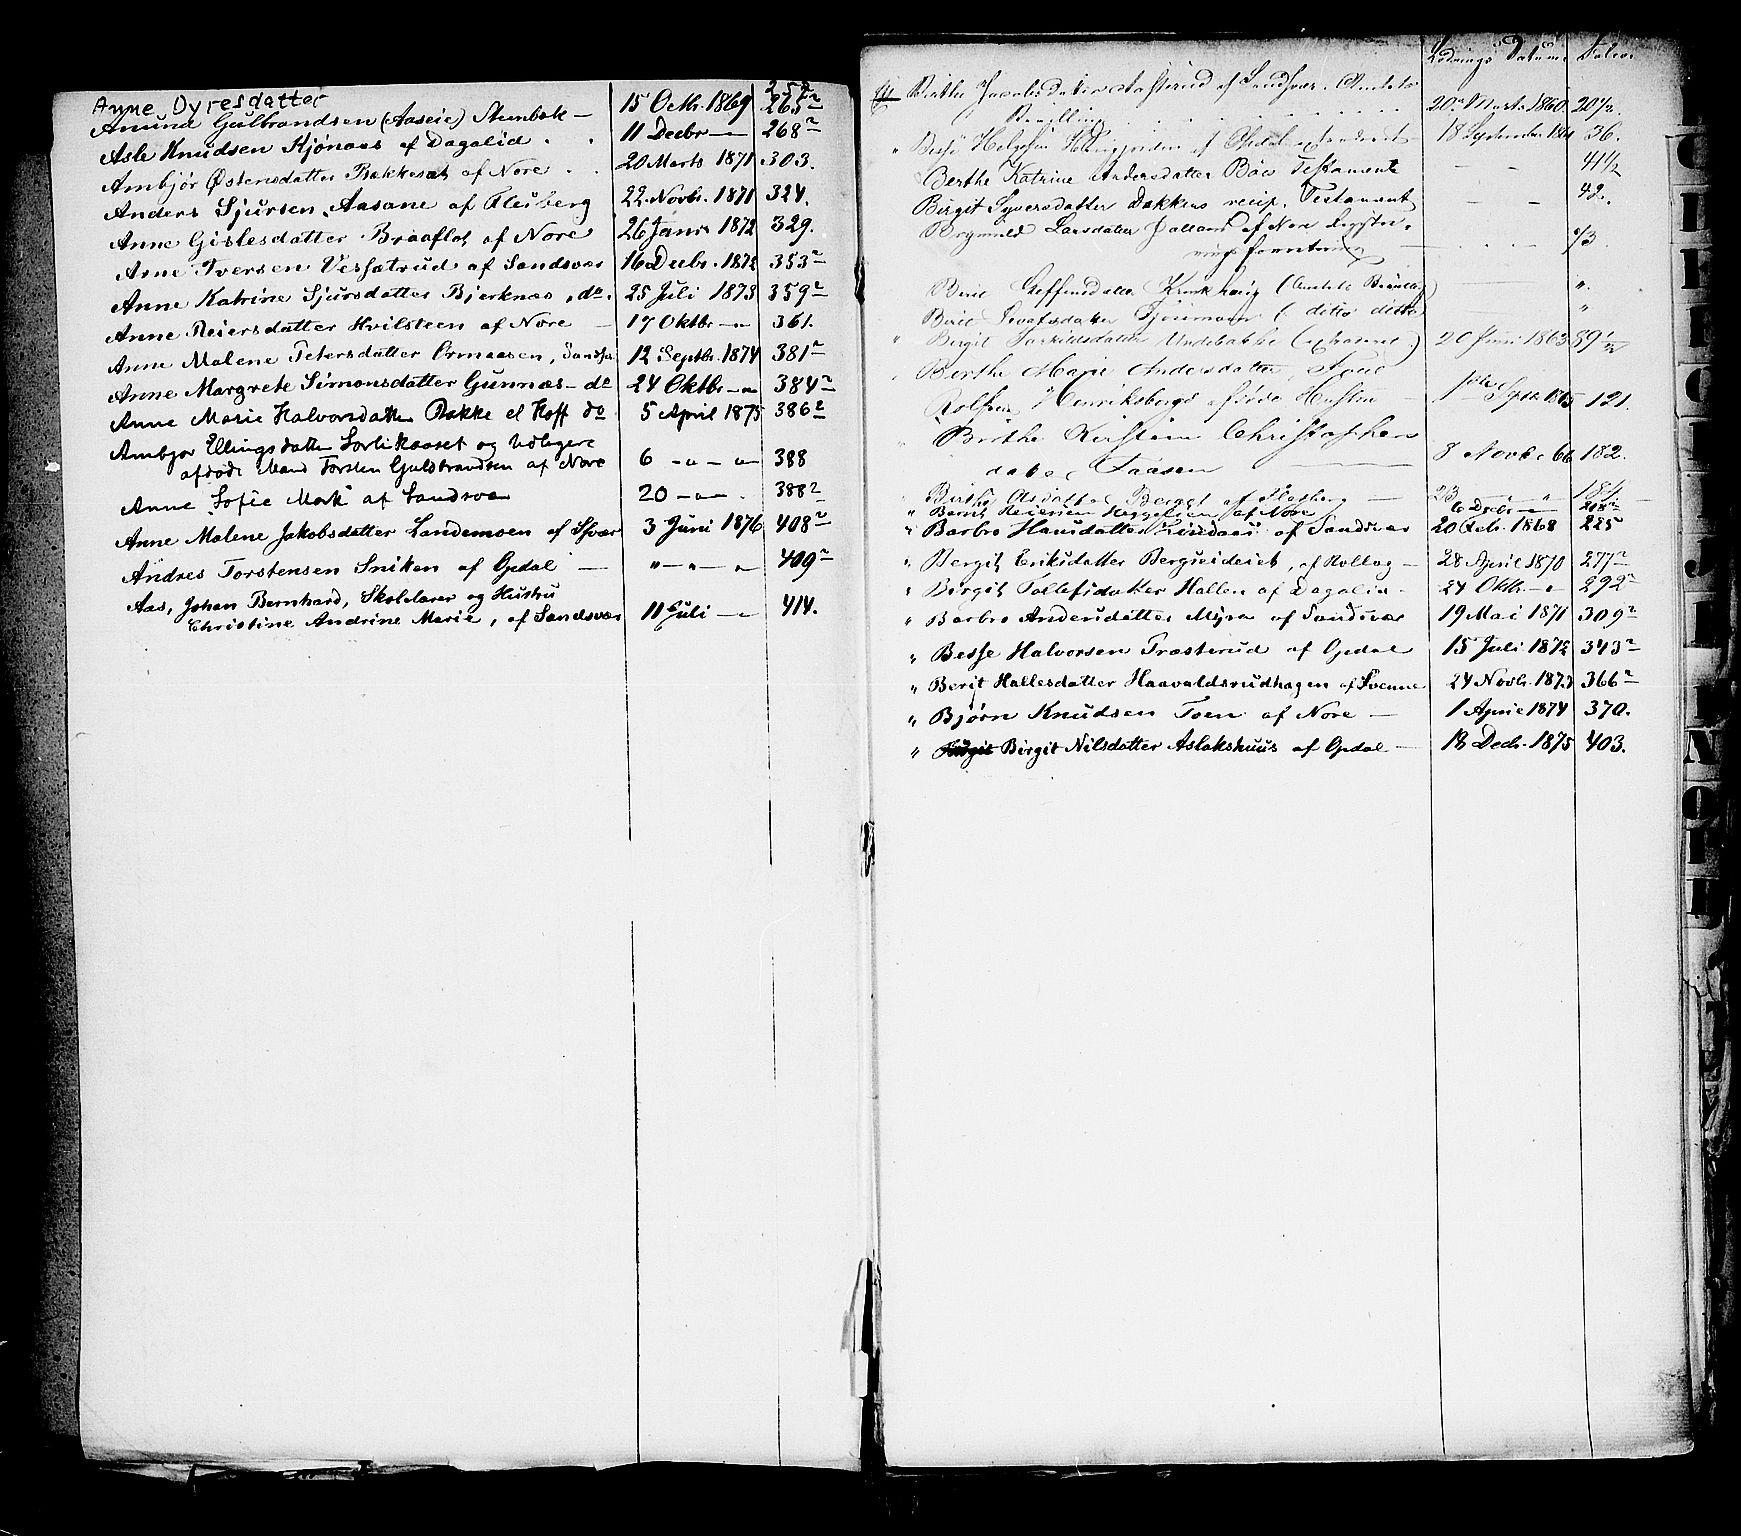 Anne Dyresdatter 252
Amund Gulbrandsen (Aaseie) Stenbek — 15 Octbr. 1869 265²
Asle Knudsen Kjönaas af Dagalid . . 11 Decbr — 268²
Ambjör Østensdatter Bakkesæt af Nore . 20 Marts 1871 303.
Anders Sjursen Aasane af Flesberg 22. Novbr. 1871 324.
Anne Gislesdatter Braaflot af Nore 26 Janr 1872 329.
Arne Iversen Vesfatrud af Sandsvær 16 Decbr. 1872 353²
Anne Katrine Sjursdatter Bjerknæs, do. 25 Juli 1873 359²
Anne Reiersdatter Hvilsteen af Nore — 17 Oktbr —"— 361.
Anne Malene Petersdatter Ormaasen, Sandsv. 12 Septbr. 1874 381²
Anne Margrete Simonsdatter Gunnæs — do 24 Oktbr —"— 384²
Anne Marie Halvorsdatter Bakke el Hoff do 5 April 1875 386²
Ambjør Ellingsdatter Sorlikaaset og tidligere
afdöde Mand Torsten Gulbrandsen af Nore 6 —"—"— 388
Anne Sofie Mork af Sandsvær 20 —"— 388²
Anne Malene Jakobsdatter Landemoen af Sfvær 3 Juni 1876 408²
Andres Torstensen Sniken af Opdal — "—"—" 409²
Aas, Johan Bernhard, Skolelærer og Hustru
Christine Andrine Marie, af Sandsvær 11 Juli —"— 414.
Datum Folio.
Birthe Jacobsdatter af Sandsvær. Amtets
Bevilling 20de Marts 1860. 20½.
" Besse Helgesen af Opdal 18 September 36.
Berthe Katrine Andersdatter Böes Testamente — — 41½
Birgit Syversdatter Bakkens recip. Testament — — 42.
Larsdatter af Nore
— . . — 43.
Berit Steffensdatter (Amtets Bevilling) — "
Berit (ditto ditto) — "
" Birgit Undebakke 20 Juni 1863 89½
Berthe Marie Andersdatter,
Henriksbergs afdöde Hustru 1ste Septr. 1865 121.
Birthe Kirstine Christophers
datter Saasen — 8 Novbr. 66 182.
" Birthe Olsdatter Berget af Flesberg — 23 — " 184.
" Bernt Reiersen af Nore 6 Decbr — 208²
" Barbro Hansdatter af Sandsvær 20 Febr. 1868 225
" Bergit Eriksdatter Bergseideiet, af Rollag — 28 April 1870 277²
" Birgit Tollefsdatter Hallen af Dagalid . 24 Oktbr. — " 292²
" Barbro Andersdatter Myra af Sandsvær 19 Mai 1871 309²
" Besse Halvorsen Træsterud af Opdal 15 Juli 1872 343²
" Berit Hallesdatter Haavaldsrudhagen af Svenne 24 Novbr. 1873 366²
" Bjørn Knudsen Toen af Nore — 1 April 1874 370.
" Birgit Nilsdatter Aslakshuus af Opdal — 18 Decbr. 1875 403.